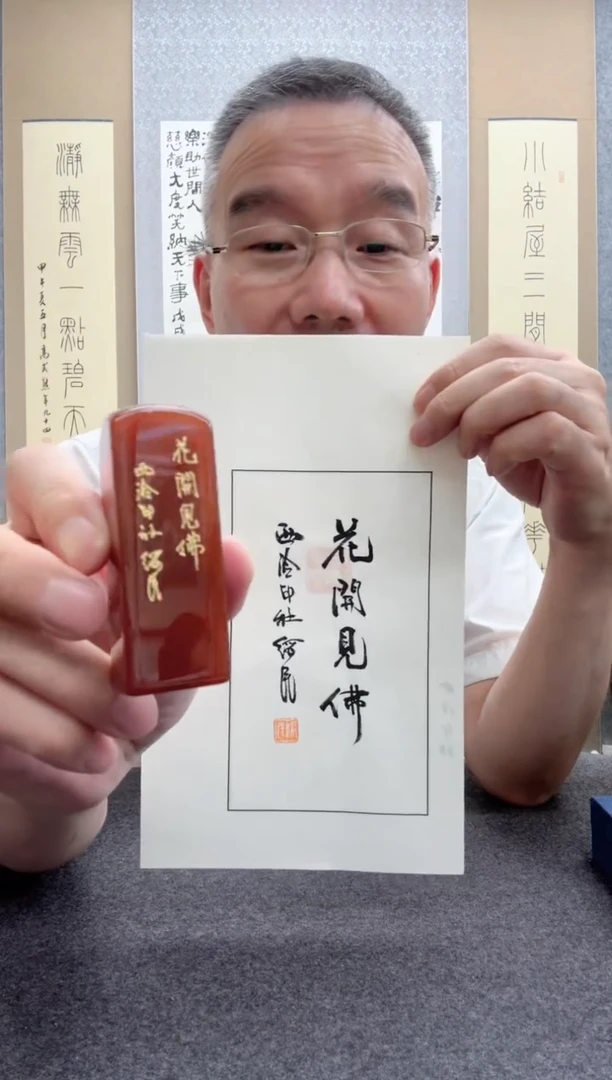 小結屋三間
樂助世間人
慈顏大度笑納天下事 戊戌
瀞無雲一點碧天
甲午夏五月高式熊年九十四
花開見佛
西泠印社
花開見佛
西泠印社